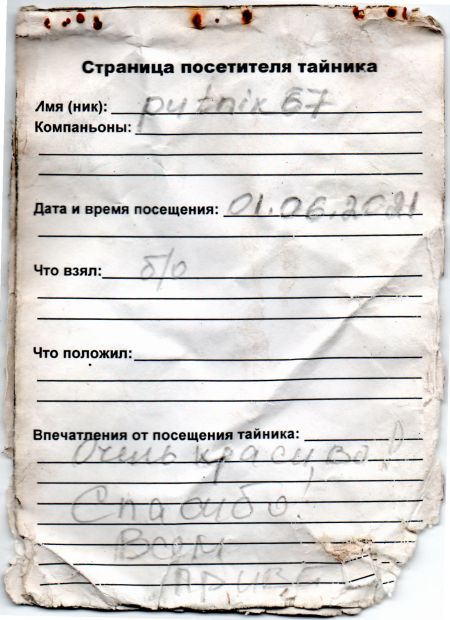 Страница посетителя тайника
Имя (ник): putnik 67
Компаньоны:
Дата и время посещения: 01.06.2021
Что взял: б/о
Что положил:
Впечатления от посещения тайника:
Очень красиво!
Спасибо!
Всем